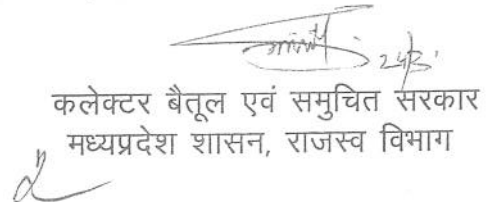 कलेक्टर बैतूल एवं समुचित सरकार
मध्यप्रदेश शासन, राजस्व विभाग